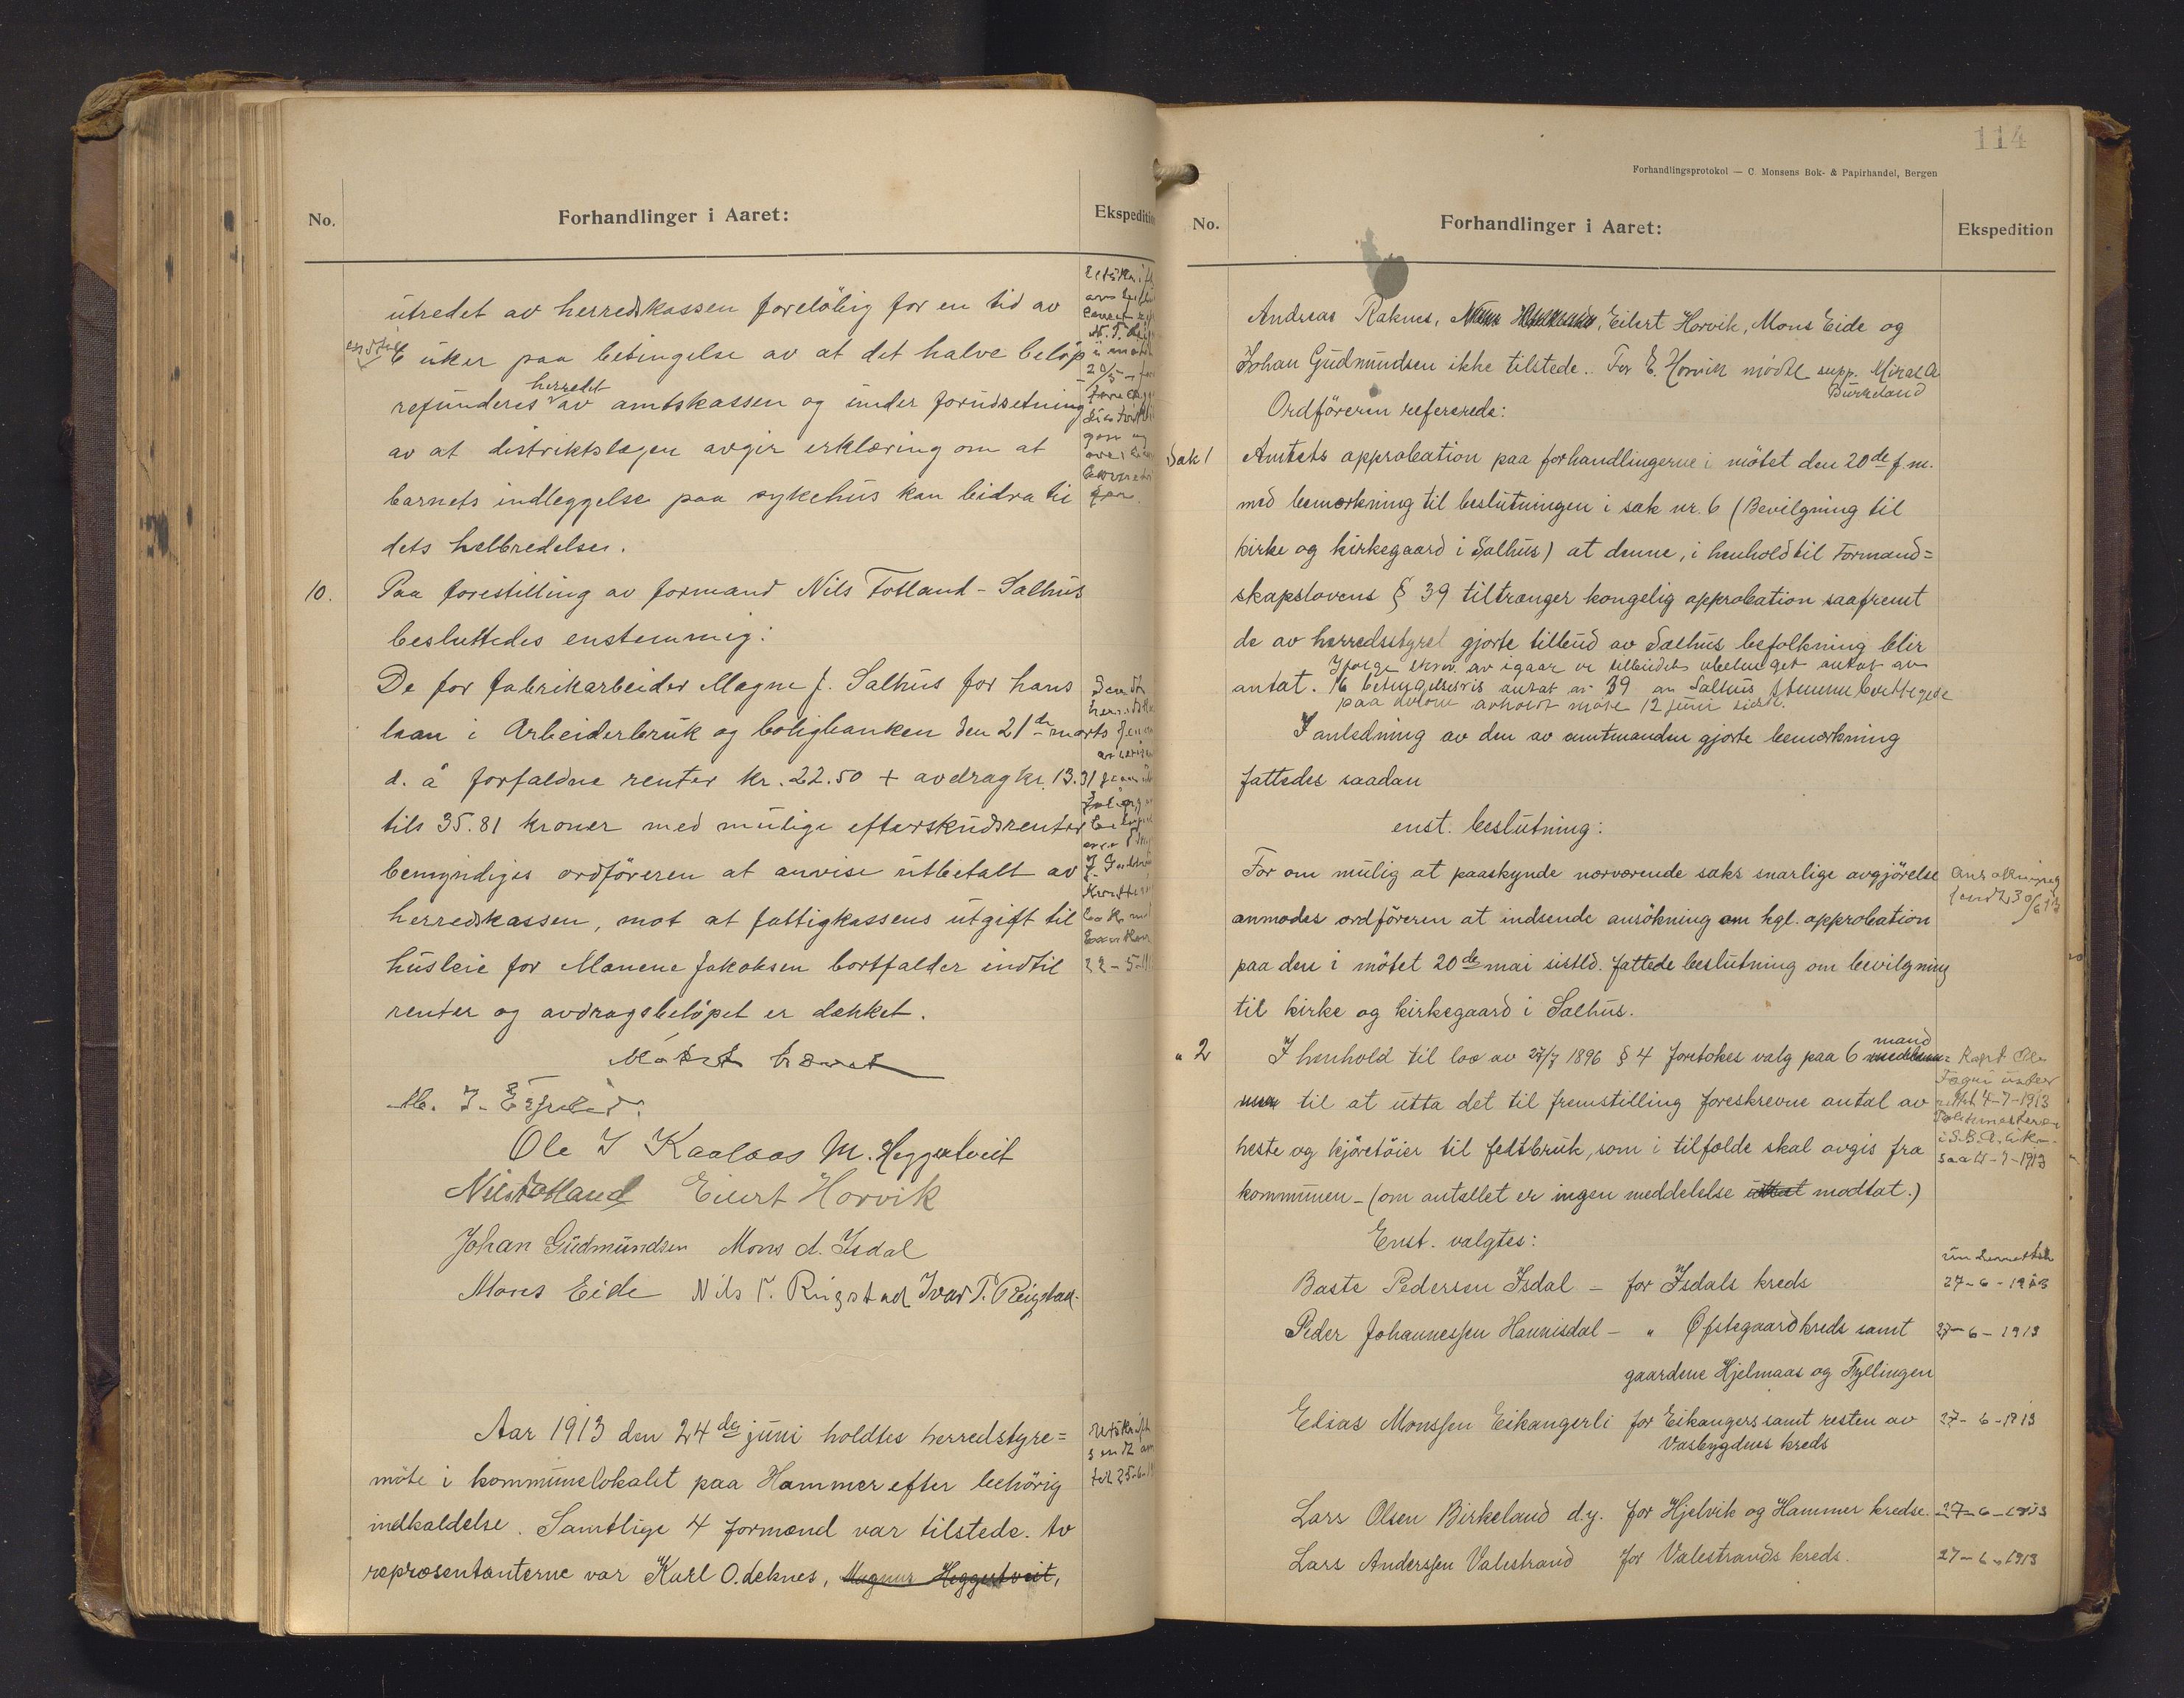 No.
Forhandlinger i Aaret:
utredet av herredskassen foreløbig for en tid av
6 uker paa betingelse av at det halve beløp
herredet
refunderes av amtskassen og under forudsetning
av at distriktslægen avgir erklæring om at
barnets indleggelse paa sykehus kan bidra til
dets helbredelse.
10. Paa forestilling av formand Nils Totland - Salhus
besluttedes enstemmig:
De for fabrikarbeider Magne J. Salhus for hans
laan i Arbeiderbruk og boligbanken den 21de marts
d. å forfaldne renter kr. 22.50 + avdrag kr. 13.31
tils 35.81 kroner med mulige efterskudsrenter
bemyndiges ordføreren at anvise utbetalt av
herredskassen, mot at fattigkassens utgift til
husleie for Monene Jakobsen bortfalder indtil
22-5-
renter og avdragsbeløpet er dækket.
Møtet hævet
Ole J Kaalaas M. Heggertveit
Nils Totland Eilert Horvik
Johan Gudmundsen Mons A. Isdal
Mons Eide Nils T. Rigstad Ivar T. Reigstad
Aar 1913 den 24de juni holdtes herredstyre=
møte i kommunelokalet paa Hammer efter behørig
indkaldelse. Samtlige 4 formænd var tilstede. Av
repræsentanterne var Karl O. deknes, Magnus Heggertveit,
114
Forhandlingsprotokol — C. Monsens Bok- & Papirhandel, Bergen
No.
Forhandlinger i Aaret:
Ekspedition
Andreas Raknes, Eilert Horvik, Mons Eide og
Johan Gudmundsen ikke tilstede. For E. Horvik mødte supp. Mikal A
Burkeland
Ordføreren refererede:
Sak 1 Amtets approbation paa forhandlingerne i møtet den 20de f.m.
med bemærkning til beslutningen i sak nr. 6 (Bevilgning til
kirke og kirkegaard i Salhus) at denne, i henhold til Formand=
skapslovens § 39 tiltrænger kongelig approbation saafremt
de av herredsstyret gjorte tilbud av Salhus befolkning blir
Ifølge skriv av igaar er tilbudet ubetinget antat av
antat. 16 betingelsesvis antat av 39 av Salhus stemmeberettigede
paa avholdt møte 12 juni sistl.
I anledning av den av amtmanden gjorte bemærkning
fattedes saadan
enst. beslutning:
For om mulig at paaskynde nærværende saks snarlige avgjørelse
anmodes ordføreren at indsende ansøkning om kgl. approbation
paa den i møtet 20de mai sistld. fattede beslutning om bevilgning
til kirke og kirkegaard i Salhus.
Ansøkning
sendt 30/6 13
mand
" 2 I henhold til lov av 27/7 1896 § 4 foretokes valg paa 6 medlem=
mer til at utta det til fremstilling foreskrevne antal av
heste og kjøretøier til feltbruk, som i tilfælde skal avgis fra
kommunen - (om antallet er ingen meddelelse mottat modtat.)
4-7-1913
Enst. valgtes:
underrettet
Baste Pedersen Isdal - for Isdals kreds 27-6-1913
Peder Johannessen Hannisdal - " Øfstegaard kreds samt 27-6-1913
gaardene Hjelmaas og Fyllingen
Elias Monssen Eikangerli for Eikangers samt resten av 27-6-1913
Vasbygdens kreds
Lars Olsen Birkeland d.y. for Hjelvik og Hammer kredse. 27-6-1913
Lars Anderssen Valestrand for Valestrands kreds. 27-6-1913